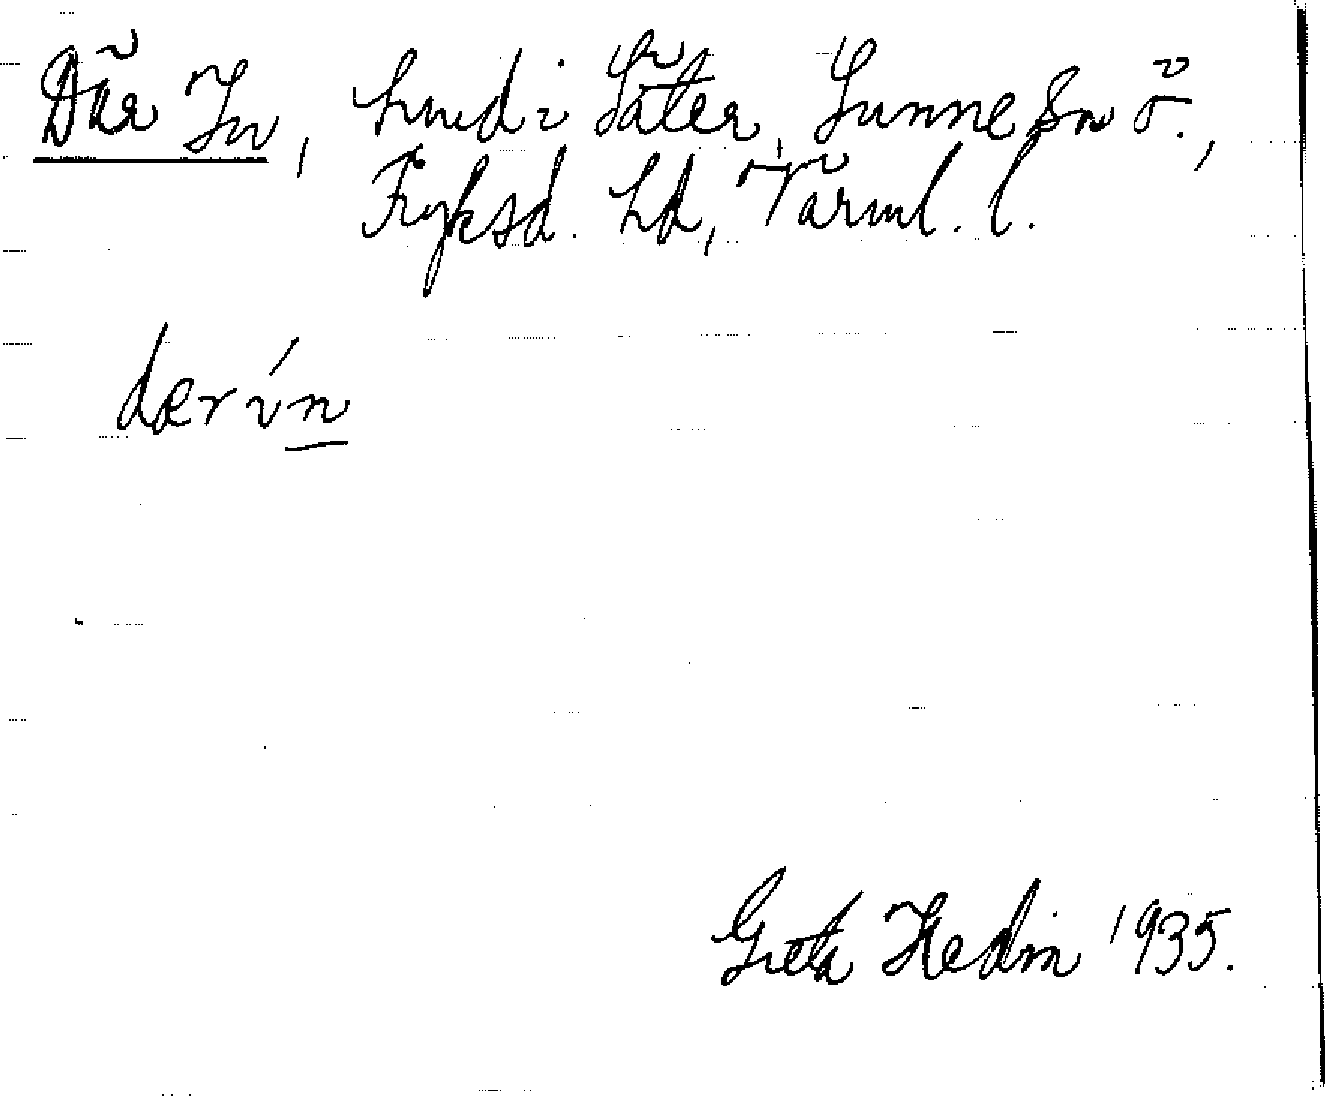 Där In, hmd i Säter, Sunne sn ö.,
Fryksd. hd, Värml. l.
dær ín
Greta Hedin 1935.